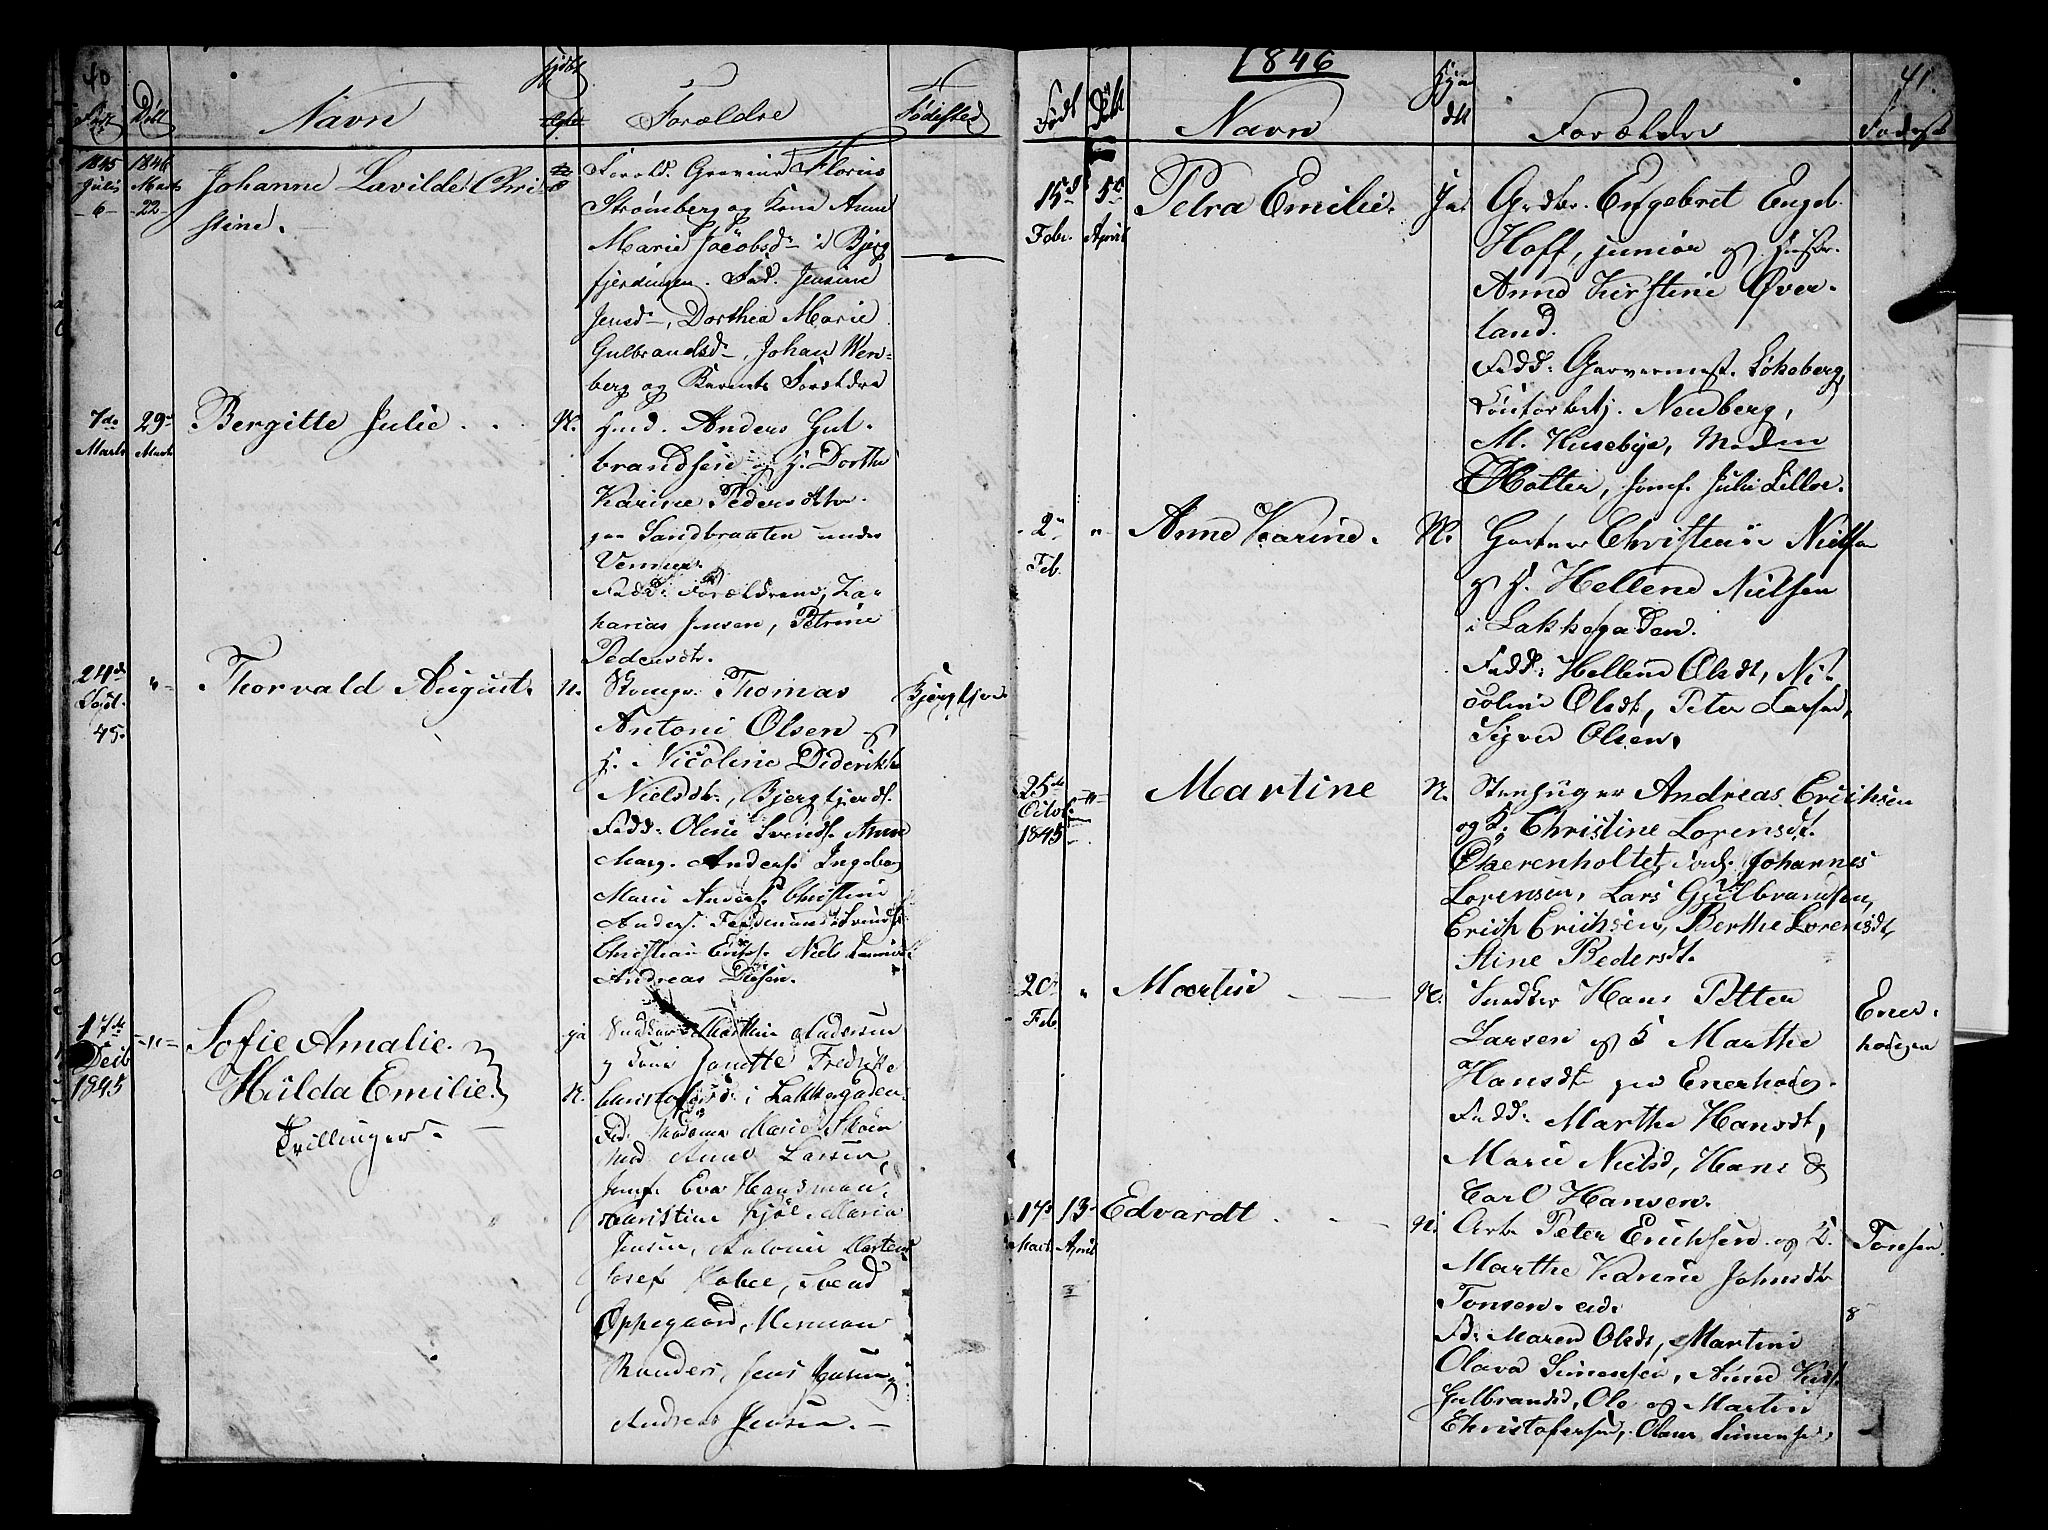 40
Født
Døbt
Navn
Hjdbt
Forældre
Fødested
1845
Julii
- 6 -
1846
Marts
- 22 -
Johanne Lovilde Chri
stine. -
Forold. Graveur Florus
Strømberg og Kone Anne
Marie Jacobsd- i Bjerg
fjerdingen. Fad. Jensine
Jensd-, Dorthea Marie
Gulbrandsd-, Johan Wen-
berg og Barnets Forældre
7de
Marts
29-
Marts
Bergitte Julie . . -
N.
Husd. Anders Gul-
brandsen og H. Dorthe
Karine Pedersdtr
paa Sandbraaten under
Fadd: Forældrene, Za-
harias Jensen, Petrine
Pedersdtr.
24de
Sept.
45.
"-
Thorvald August.
N.
Thomas
Antoni Olsen og
H. Nicoline Diderikke
Nielsdtr., Bjergfjerd.
Fadd: Oline Svends. Anne
Marg. Anders. Ingeborg
Marie Anders. Christine
Anders. Ferdinand Svends
Christian Ericks. Niels
Andreas Olsen.
Bjergfjer
17de
Decb
1845
-"-
Sofie Amalie.
Hulda Emilie.
Tvillinger. -
ja
N.
Snedker Marthin Andersen
og Kone Janette Fredrikke
Christofersd. i Lakkegaden.
Fad. Madame Marie Skøien
Mad Anne Larsen,
Jomf. Eva Hansman,
Christine Kjøl. Maria
Jensen, Antonie Mortens
Josef Svend
Oppegaard, Herman
Randers, Jens
Andreas Jensen. -
1846
41.
Født
Døbt
Navn
Hje
dbt
Forældre
Fødest
15de
Febr.
5te
April
Petra Emilie.
Ja.
Grdbr. Engebret Engeb.
Hoff, junior og Hustr.
Anne Kirstine Øver-
land.
Fadd: Garvermest. Løkeberg,
Contorbetj. Neuberg,
M. Huseby, Madm
Holter, Jomf. Julie Lilloe.
- 2-
Feb.
"-
Anne Karine.
N.
Gartner Christense Nielsen
og H. Hellene Nielsen
i Lakkegaden.
Fadd: Hellene Olsdt, Ni-
coline Olsdt, Peter Larsen,
Signe Olsen.
25de
Octob.
1845
-"-
Martine
N.
Stenhuger Andreas Erichsen
og K: Christine Lorensdt.
Ekerenholtet, Fad. Johannes
Lorensen, Lars Gulbrandsen,
Erich Erichsen, Berthe Lorensdt,
Stine Pedersdt.
20
Feb
"
Martin - -
N.
Snedker Hans Petter
Larsen og H Marthe
Hansdt paa Enerhoug.
Fadd: Marthe Hansdt,
Marie Nielsd, Hans &
Carl Hansen.
Ener-
hougen
17de
Marts
13-
April
Edvardt . -
N.
Arb. Peter Erichsen og K.
Marthe Karine Johnsdtr
Tonsen. eid.
Fd: Maren Olsdt, Martine
Olava Simensen, Anne
Gulbrandsd, Ole og Martin
Christofersen, Olaus Simensen.
Tonsen
8